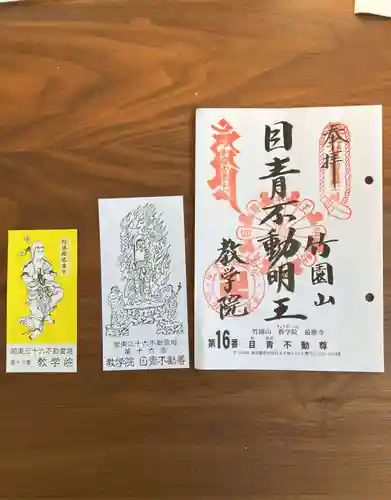 阿婆羅底童子
関東三十六不動霊場
第十六番 教学院
関東三十六不動霊場
第十六番
教学院 目青不動尊
奉拝
目青不動明王
竹園山
教学院
竹園山 教学院 最勝寺
第16番 目青不動尊